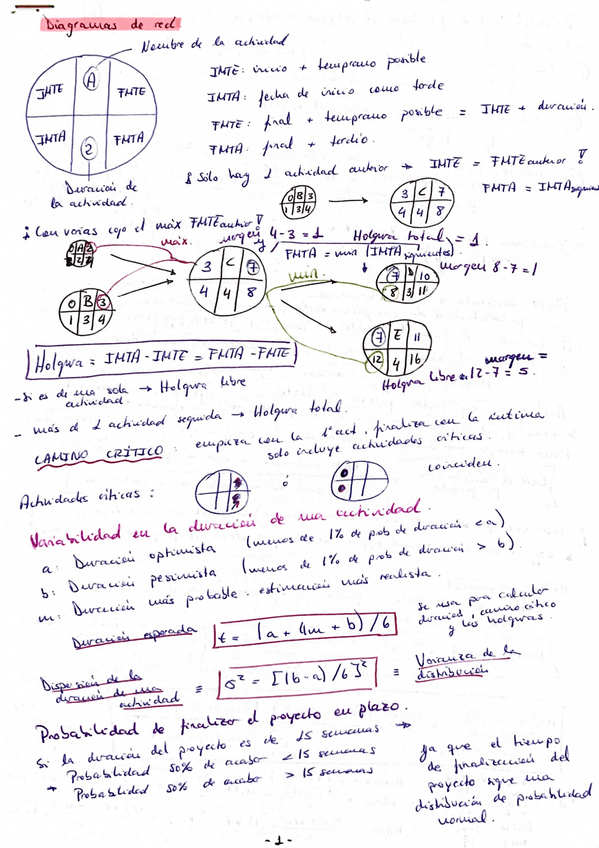 Diagramas de red
Nombre de la actividad
IMTE A FMTE
IMTA 2 FMTA
Duración de la actividad.
IMTE: inicio + temprano posible
IMTA: fecha de inicio como tarde
FMTE: final + temprano posible = IMTE + duración.
FMTA: final + tardío.
Sólo hay 1 actividad anterior → IMTE = FMTE anterior !
FMTA = IMTA siguiente
0 B 3
1 3 4
3 C 7
4 4 8
Con varias cojo el máx FMTE anterior !
margen 4-3 = 1
Holgura total = 1.
y FMTA = min (IMTA siguientes)
máx.
0 A 2
3 C 7
4 4 8
min.
7 D 10
8 3 11
margen 8-7=1
0 B 3
1 3 4
7 E 11
12 4 16
margen =
Holgura libre = 12-7 = 5.
Holgura = IMTA-IMTE = FMTA-FMTE
- Si es de una sola actividad → Holgura libre
- más de 1 actividad seguida → Holgura total.
CAMINO CRÍTICO: empieza con la 1ª act, finaliza con la última
solo incluye actividades críticas.
Actividades críticas: ó coinciden.
Variabilidad en la duración de una actividad.
a: Duración optimista (menos de 1% de prob de duración < a)
b: Duración pesimista (menos de 1% de prob de duración > b).
m: Duración más probable: estimación más realista.
Duración esperada t = (a + 4m + b)/6
se usa para calcular duración, camino crítico y las holguras.
Dispersión de la duración de una actividad ≡ σ² = [(b-a)/6]² ≡ Varianza de la distribución
Probabilidad de finalizar el proyecto en plazo.
Si la duración del proyecto es de 15 semanas →
→ Probabilidad 50% de acabar < 15 semanas
Probabilidad 50% de acabar > 15 semanas
ya que el tiempo
de finalización del
proyecto sigue una
distribución de probabilidad
normal.
-1-